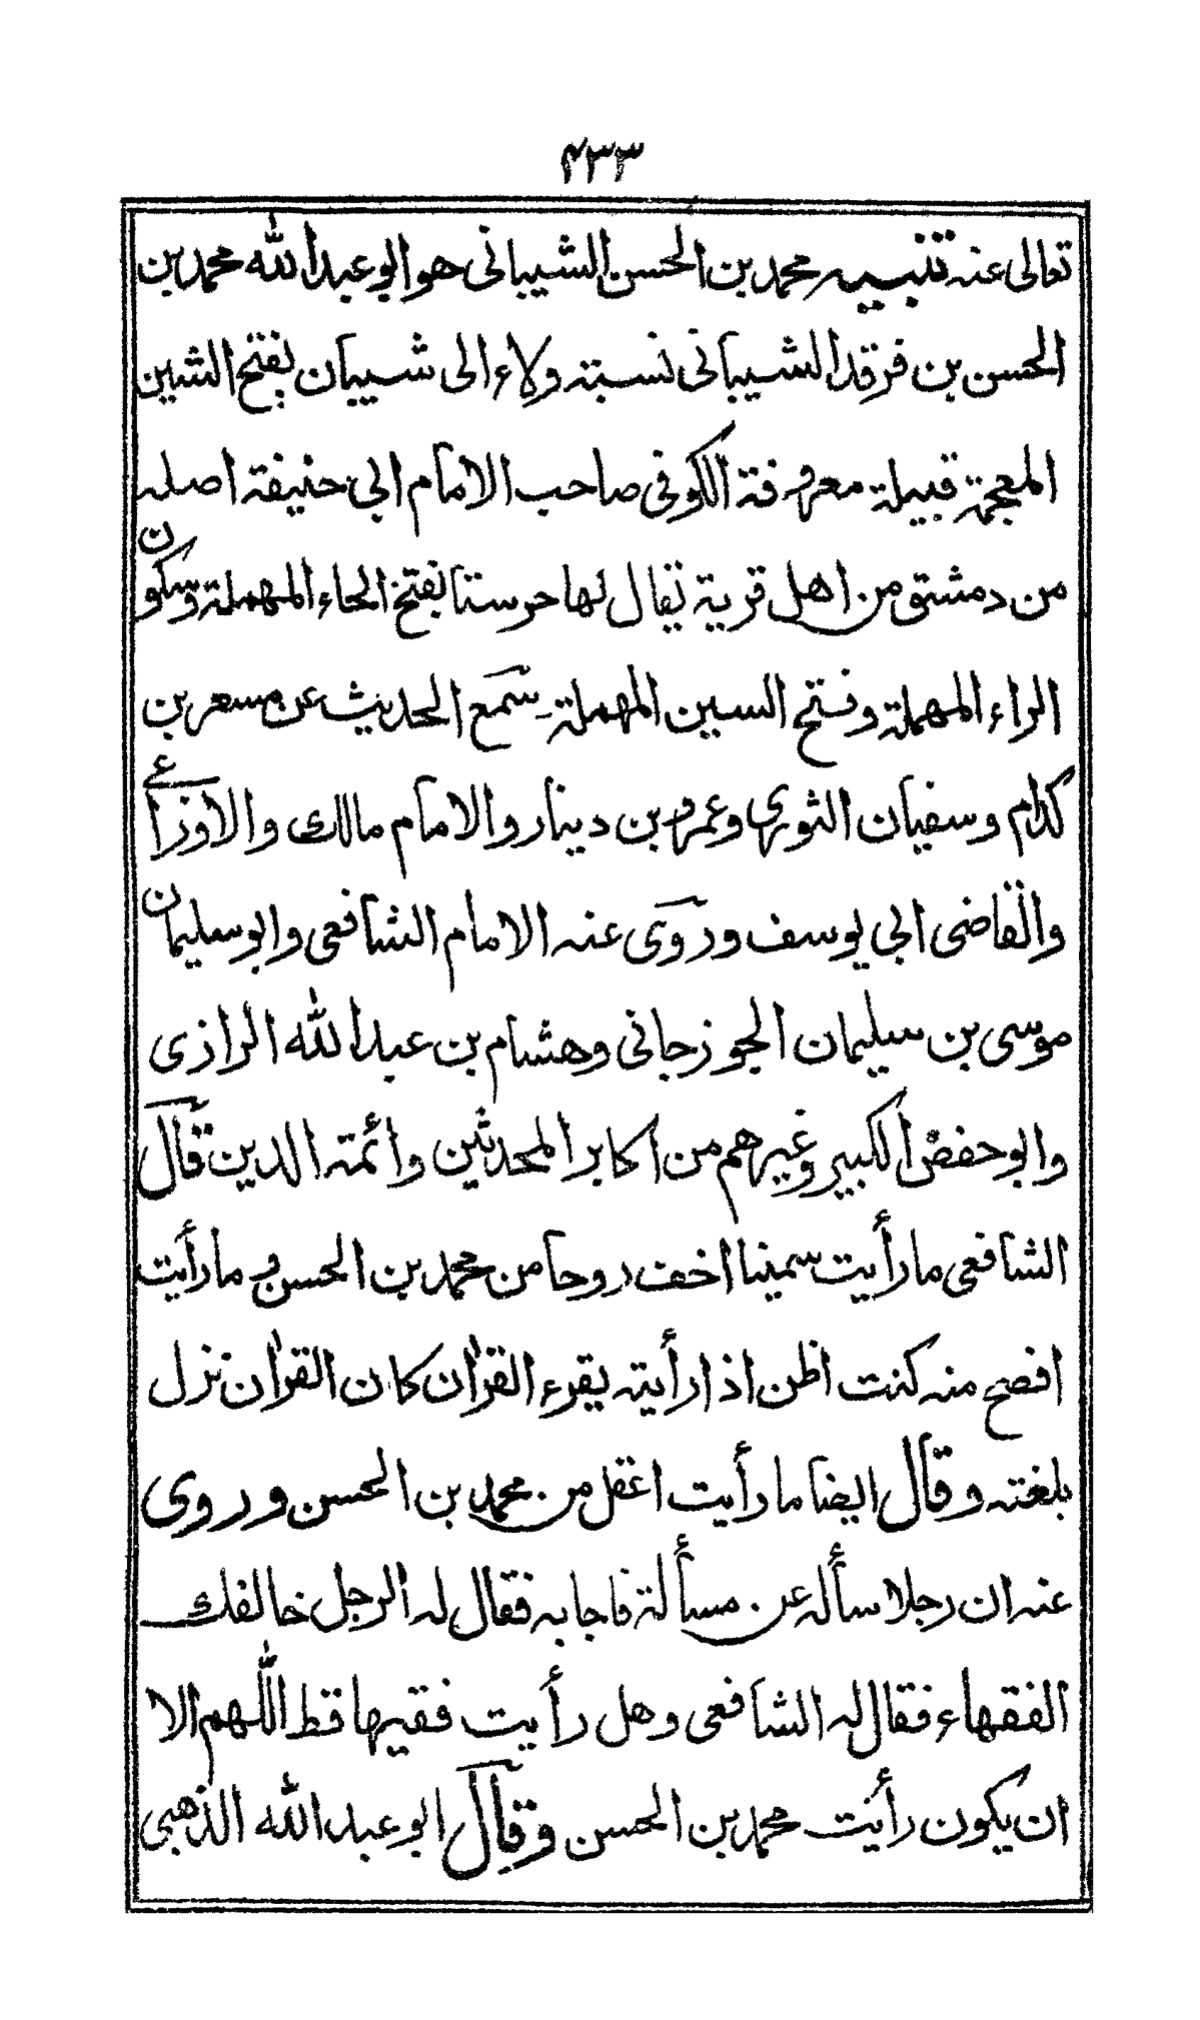 ۴۳۳
تعالى عنه تنبيه محمد بن الحسن الشيبانى هو ابو عبد الله محمد بن
الحسن بن فرقد الشيبانى نسبته ولاء الى شيبان بفتح الشين
المعجمة قبيلة معروفة الكوفى صاحب الامام ابى حنيفة اصله
من دمشق من اهل قرية يقال لها حرستا بفتح الحاء المهملة وسكون
الراء المهملة وفتح السين المهملة سمع الحديث عن مسعر بن
كدام وسفيان الثورى وعمرو بن دينار والامام مالك والاوزاعے
والقاضى ابى يوسف وروى عنه الامام الشافعى وابو سليمان
موسى بن سليمان الجوزجانى وهشام بن عبد الله الرازى
وابو حفص الكبير وغيرهم من اكابر المحدثين وائمة الدين قال
الشافعى ما رأيت سمينا اخف روحا من محمد بن الحسن وما رأيت
افصح منه كنت اظن اذا رأيته يقرء القرأن كان القرأن نزل
بلغته وقال ايضا ما رأيت اعقل من محمد بن الحسن وروى
عنه ان رجلا سأله عن مسألة فاجابه فقال له الرجل خالفك
الفقهاء فقال له الشافعى وهل رأيت فقيها قط اللهم الا
ان يكون رأيت محمد بن الحسن وقال ابو عبد الله الذهبى